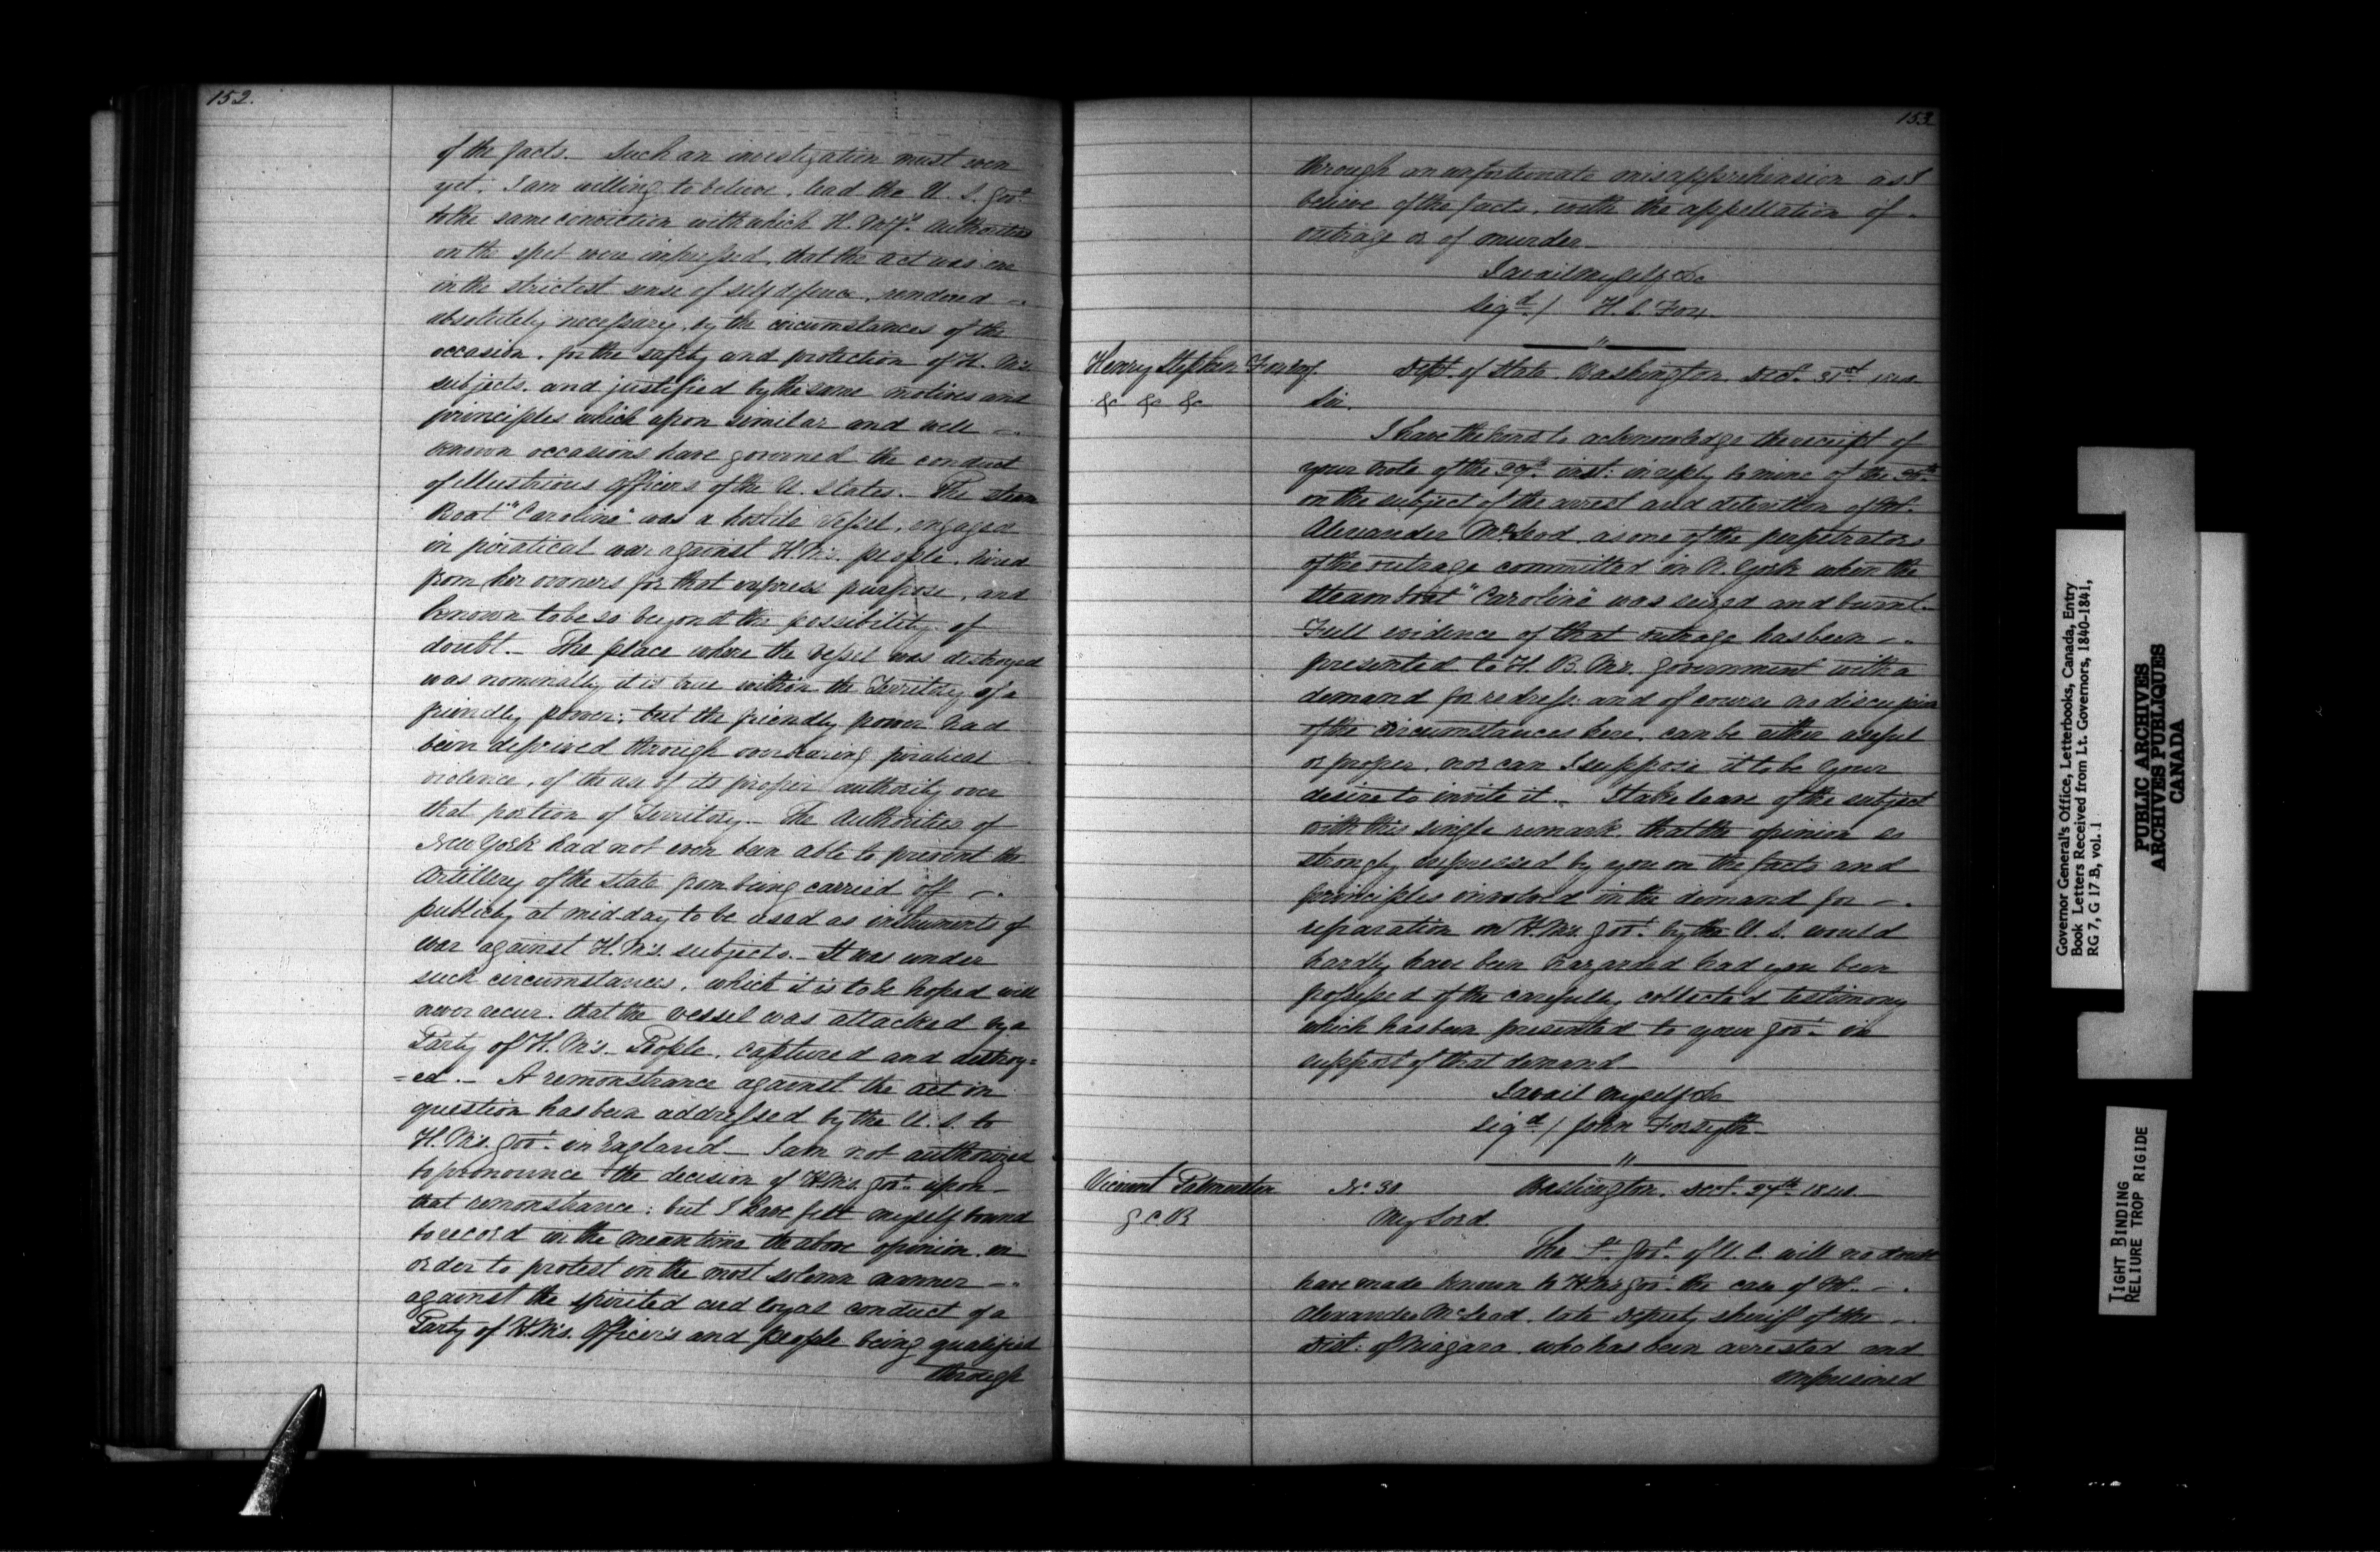 152.
of the facts. Such an investigation must even
yet, I am willing to believe, lead the U. S. Govt.
to the same conviction with which H. My's. Authorities
on the spot were impressed, that the act was one
in the strictest sense of self defence, rendered
absolutely necessary, by the circumstances of the
occasion, for the safety and protection of H. M's.
subjects, and justified by the same motives and
principles which upon similar and well
known occasions have governed the conduct
of illustrious Officers of the U. States. The steam
Boat "Caroline" was a hostile vessel, engaged
in piratical war against H. M's. people, hired
from her owners for that express purpose, and
known to be so beyond the possibility of
doubt. The place where the Vessel was destroyed
was nominally it is true within the Territory of a
friendly power; but the friendly power had
been deprived through overbearing piratical
violence, of the use of its proper authority over
that portion of Territory. The Authorities of
New York had not even been able to prevent the
Artillery of the State from being carried off
publicly at mid-day to be used as instruments of
war against H. M's. subjects. It was under
such circumstances, which it is to be hoped will
never recur, that the vessel was attacked by a
Party of H. M's. People, captured and destroy=
=ed. A remonstrance against the act in
question has been addressed by the U. S. to
H. M's. Govt. in England. I am not authorized
to pronounce the decision of H. M's. Govt. upon
that remonstrance; but I have felt myself bound
to record in the mean time the above opinion, in
order to protest in the most solemn manner
against the spirited and loyal conduct of a
Party of H. M's. Officers and people being qualified
through
153
through an unfortunate misapprehension as I
believe of the facts, with the appellation of
outrage or of murder
I avail myself &c
Sigd. / H. S. Fox.
Henry Stephen Fox Esq.
&c &c &c
Dept. of State, Washington, Decr. 31st. 1840
Sir.
I have the honor to acknowledge the receipt of
your Note of the 29th. inst: in reply to mine of the 26th.
on the subject of the arrest and detention of Mr.
Alexander McLeod, as one of the perpetrators
of the outrage committed in N. York when the
Steamboat "Caroline" was seized and burnt.
Full evidence of that outrage has been
presented to H. B. Ms. Government with a
demand for redress, and of course no discussion
of the circumstances here, can be either useful
or proper, nor can I suppose it to be your
desire to invite it. I take leave of the subject
with this single remark, that the opinion so
strongly expressed by you on the facts and
principles involved in the demand for
reparation on H. M's. Govt. by the U. S. would
hardly have been hazarded had you been
possessed of the carefully collected testimony
which has been presented to your Govt. in
support of that demand
I avail myself &c
Sigd. / John Forsyth
Viscount Palmerston
G C B
No. 30 Washington, Decr. 27th. 1840
My Lord
The Lt. Govr. of U. C. will no doubt
have made known to H. M's Govt. the case of Mr.
Alexander McLeod, late Deputy Sheriff of the
Dist: of Niagara, who has been arrested and
imprisoned
Governor General's Office, Letterbooks, Canada, Entry
Book Letters Received from Lt. Governors, 1840-1841,
RG 7, G 17 B, vol. 1
PUBLIC ARCHIVES
ARCHIVES PUBLIQUES
CANADA
TIGHT BINDING
RELIURE TROP RIGIDE